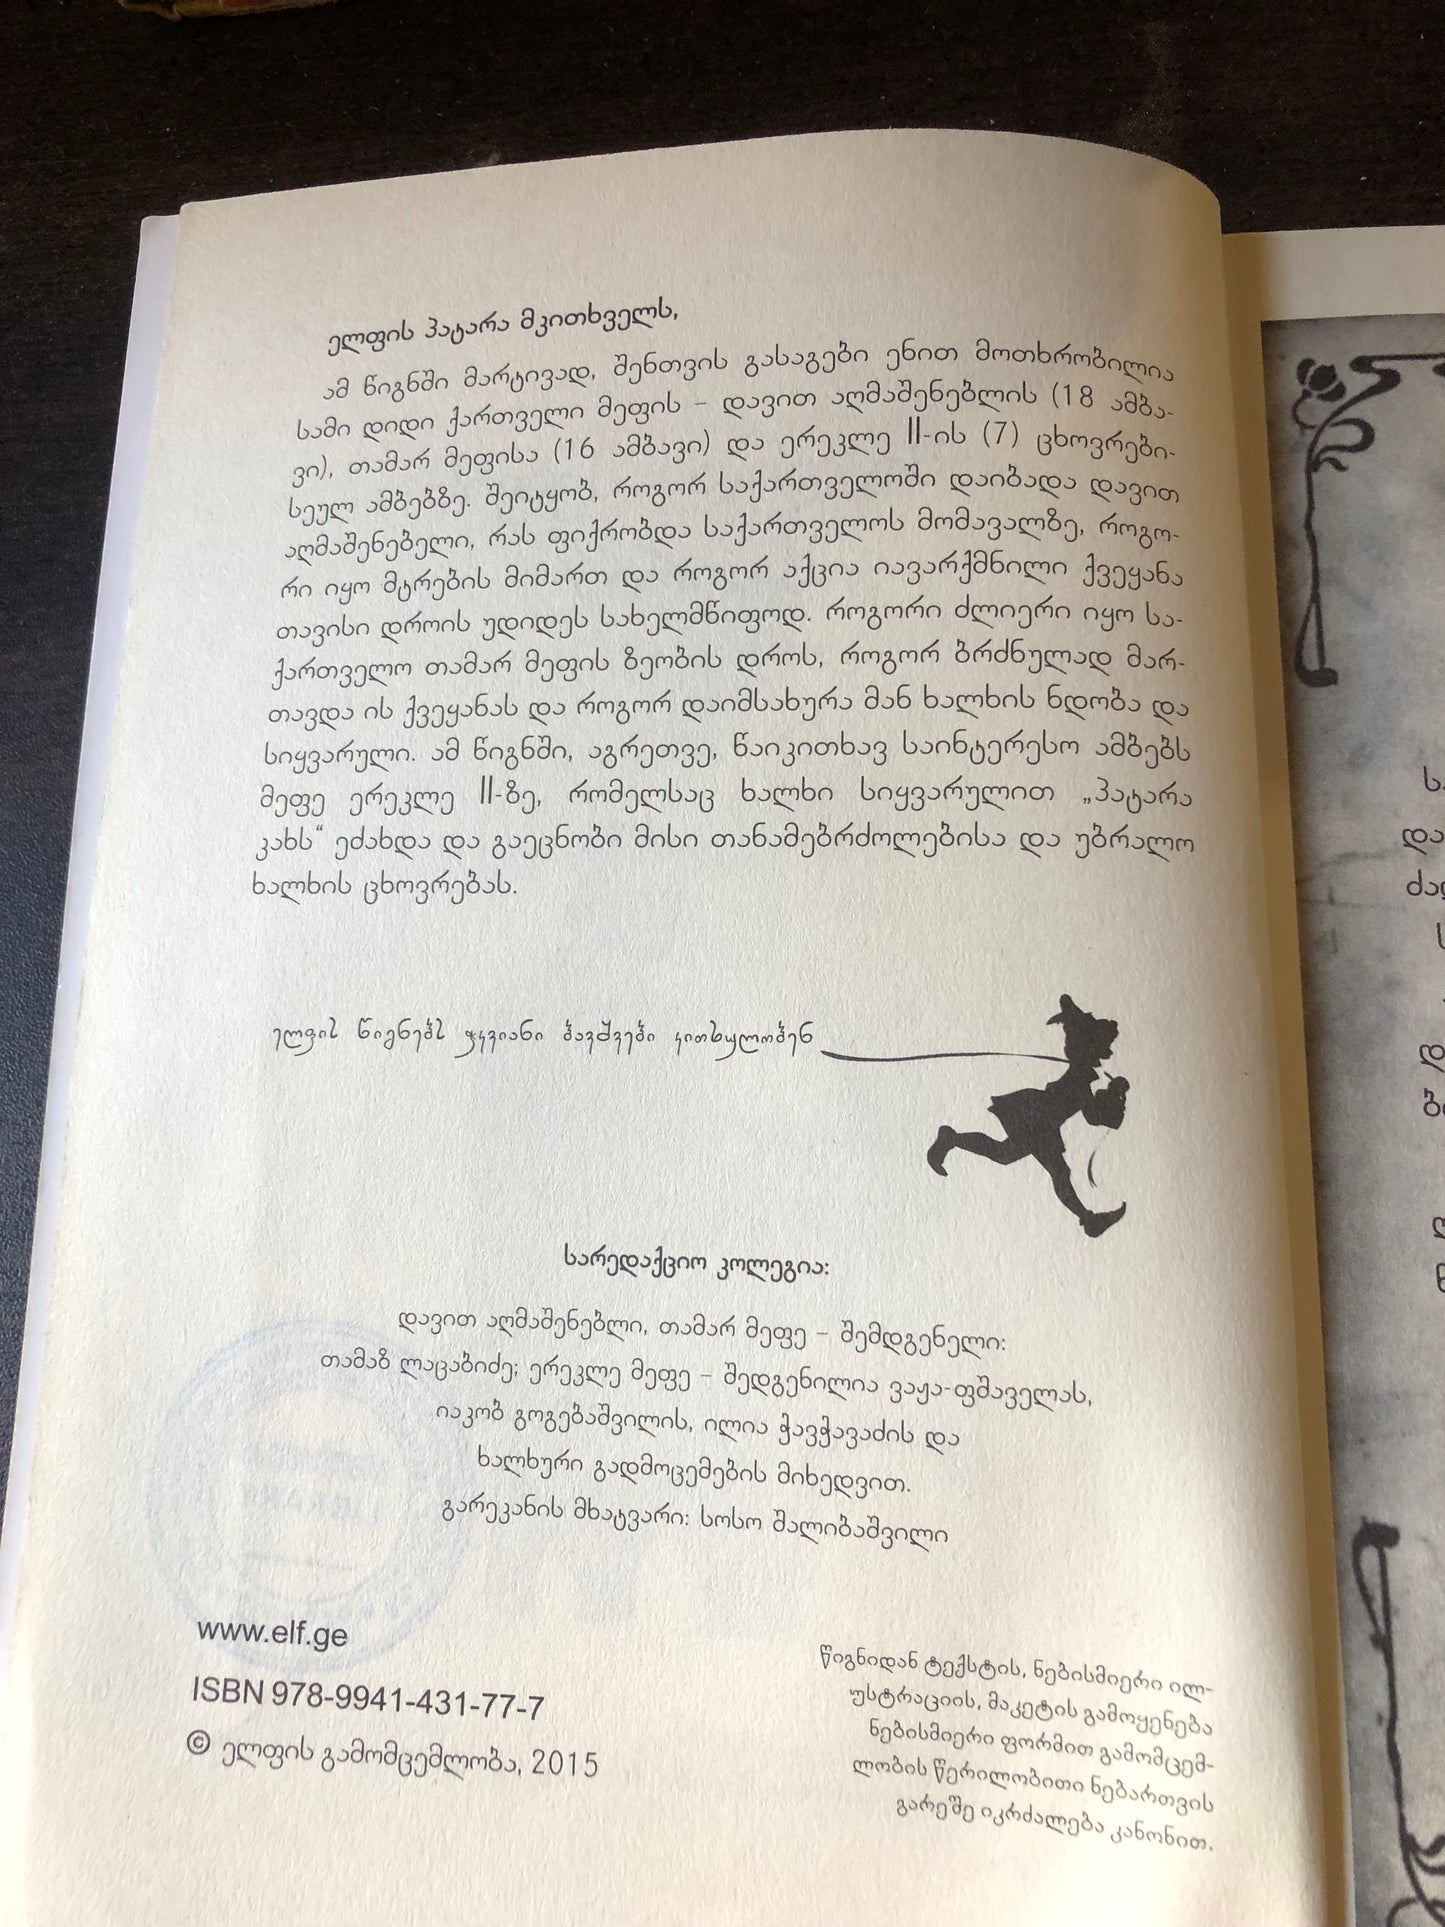 ელფის პატარა მკითხველს,
ამ წიგნში მარტივად, შენთვის გასაგები ენით მოთხრობილია
სამი დიდი ქართველი მეფის – დავით აღმაშენებლის (18 ამბა-
ვი), თამარ მეფისა (16 ამბავი) და ერეკლე II-ის (7) ცხოვრები-
სეულ ამბებზე. შეიტყობ, როგორ საქართველოში დაიბადა დავით
აღმაშენებელი, რას ფიქრობდა საქართველოს მომავალზე, როგო-
რი იყო მტრების მიმართ და როგორ აქცია იავარქმნილი ქვეყანა
თავისი დროის უდიდეს სახელმწიფოდ. როგორი ძლიერი იყო სა-
ქართველო თამარ მეფის ზეობის დროს, როგორ ბრძნულად მარ-
თავდა ის ქვეყანას და როგორ დაიმსახურა მან ხალხის ნდობა და
სიყვარული. ამ წიგნში, აგრეთვე, წაიკითხავ საინტერესო ამბებს
მეფე ერეკლე II-ზე, რომელსაც ხალხი სიყვარულით „პატარა
კახს“ ეძახდა და გაეცნობი მისი თანამებრძოლებისა და უბრალო
ხალხის ცხოვრებას.
ელფის წიგნებს ჭკვიანი ბავშვები კითხულობენ
სარედაქციო კოლეგია:
დავით აღმაშენებლი, თამარ მეფე – შემდგენელი:
თამაზ ლაცაბიძე; ერეკლე მეფე – შედგენილია ვაჟა-ფშაველას,
იაკობ გოგებაშვილის, ილია ჭავჭავაძის და
ხალხური გადმოცემების მიხედვით.
გარეკანის მხატვარი: სოსო შალიბაშვილი
www.elf.ge
ISBN 978-9941-431-77-7
© ელფის გამომცემლობა, 2015
წიგნიდან ტექსტის, ნებისმიერი ილ-
უსტრაციის, მაკეტის გამოყენება
ნებისმიერი ფორმით გამომცემ-
ლობის წერილობითი ნებართვის
გარეშე იკრძალება კანონით.